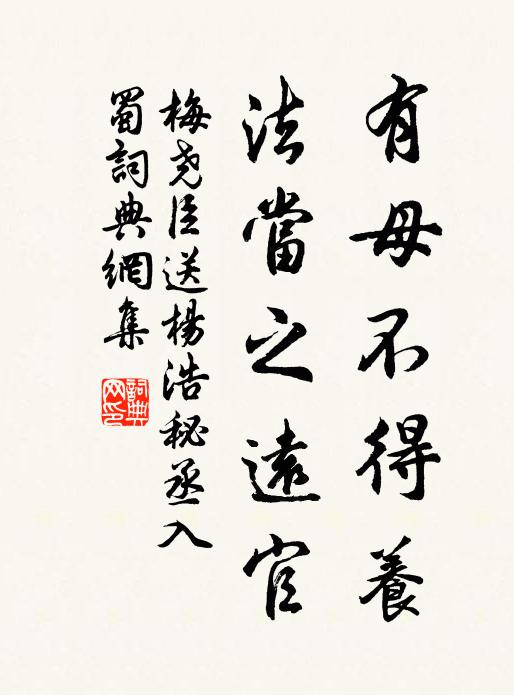 有母不得養
法當之遠官
梅堯臣送楊浩秘丞入
蜀詞典網集
詞典
网印